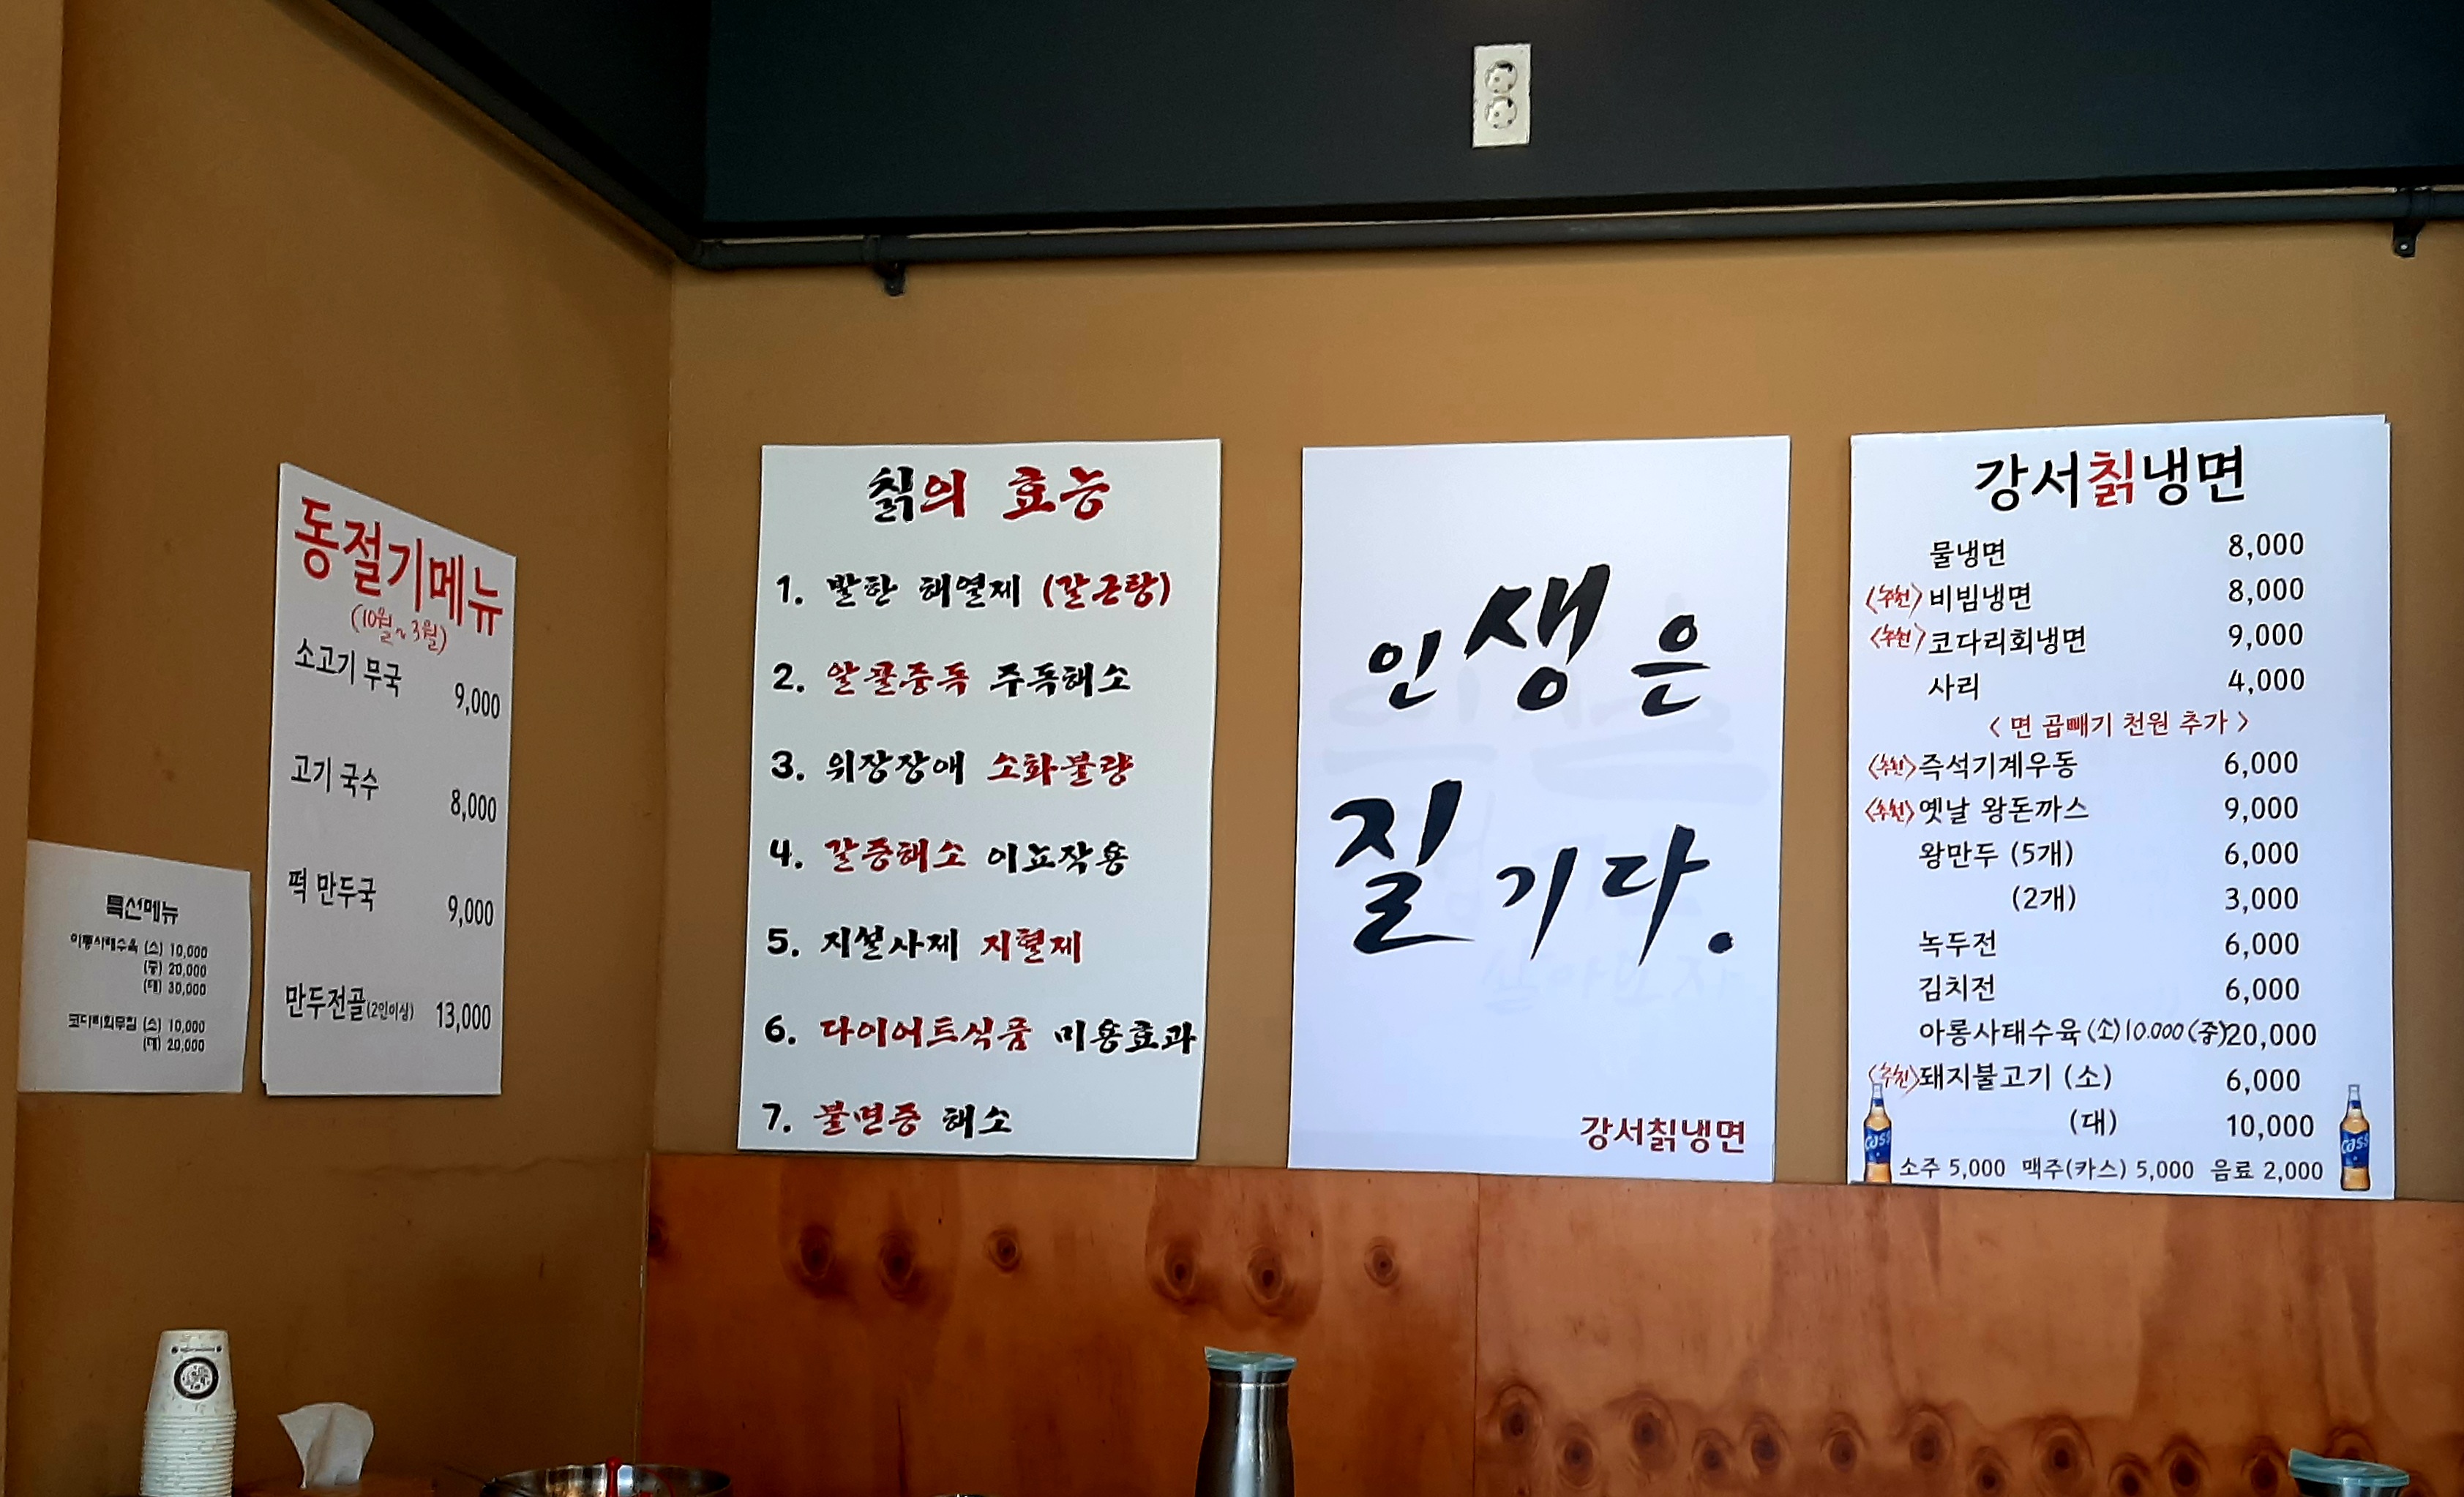 특선메뉴
아롱사태수육 (소) 10,000
(중) 20,000
(대) 30,000
코다리회무침 (소) 10,000
(대) 20,000
동절기메뉴
(10월~3월)
소고기 무국 9,000
고기 국수 8,000
떡 만두국 9,000
만두전골(2인이상) 13,000
칡의 효능
1. 발한 해열제 (갈근탕)
2. 알콜중독 주독해소
3. 위장장애 소화불량
4. 갈증해소 이뇨작용
5. 지설사제 지혈제
6. 다이어트식품 미용효과
7. 불면증 해소
인생은
질기다.
강서칡냉면
강서칡냉면
물냉면 8,000
<추천> 비빔냉면 8,000
<추천> 코다리회냉면 9,000
사리 4,000
< 면 곱빼기 천원 추가 >
<추천> 즉석기계우동 6,000
<추천> 옛날 왕돈까스 9,000
왕만두 (5개) 6,000
(2개) 3,000
녹두전 6,000
김치전 6,000
아롱사태수육 (소) 10.000 (중) 20,000
<추천> 돼지불고기 (소) 6,000
(대) 10,000
소주 5,000 맥주(카스) 5,000 음료 2,000
Cass
Cass